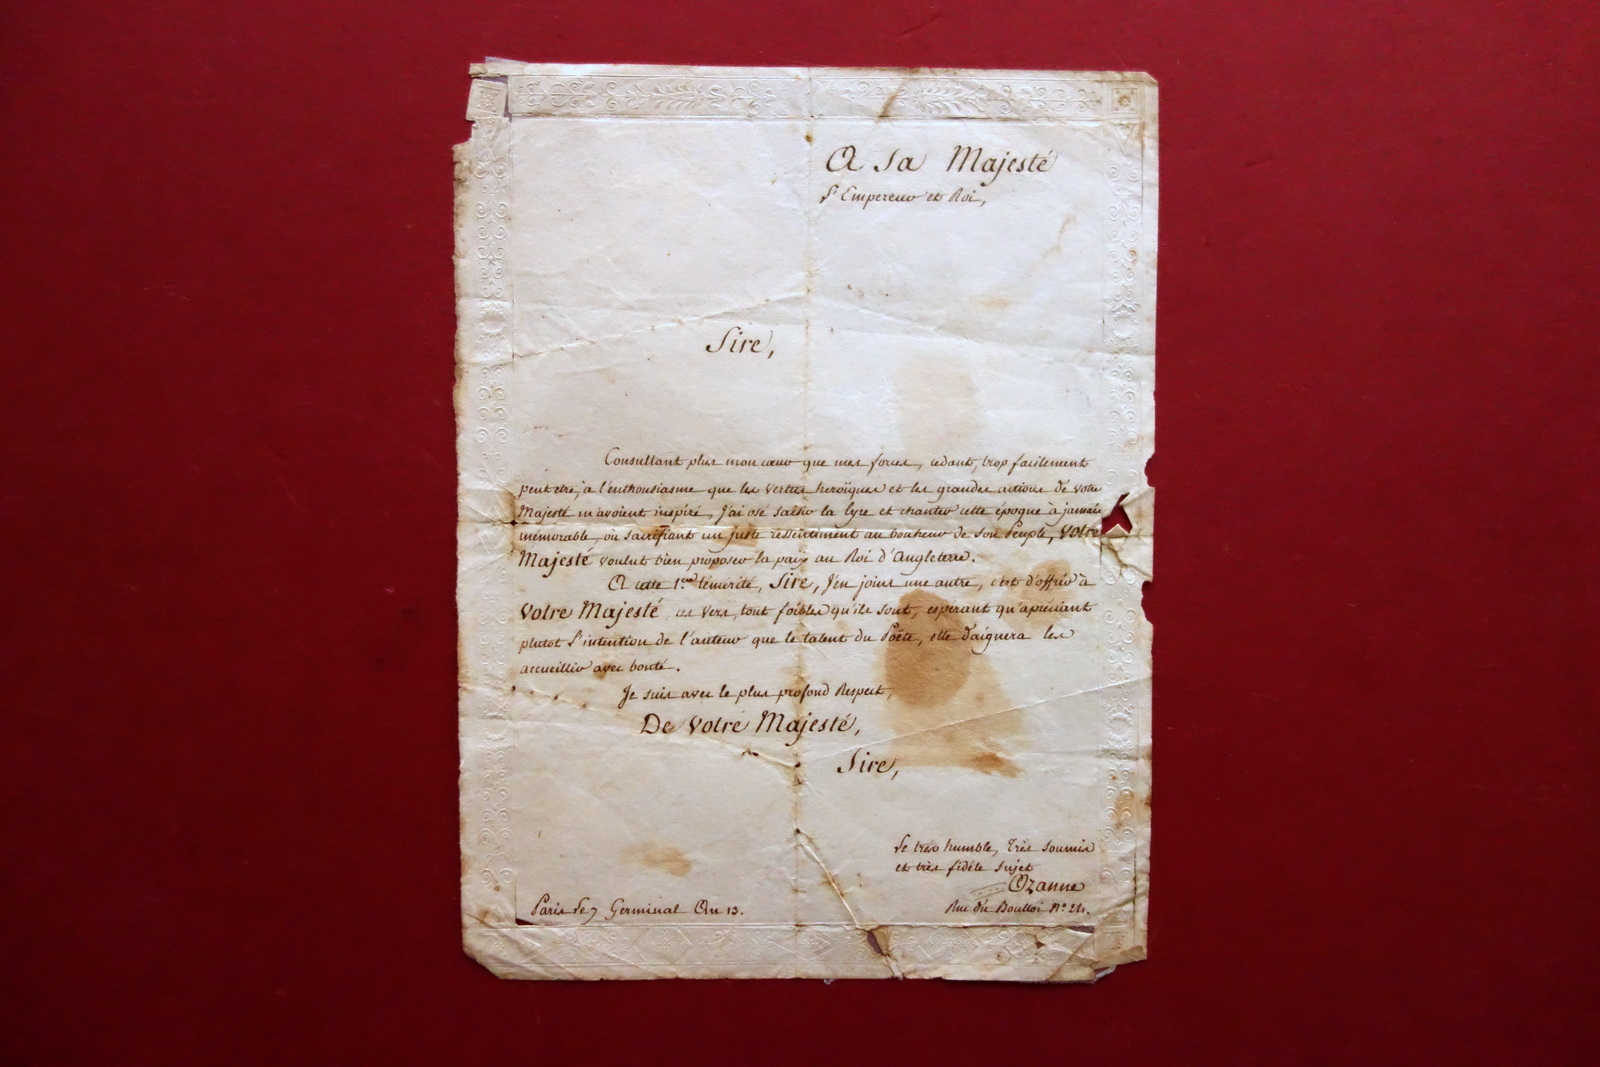 A Sa Majesté
L'Empereur et Roi,
Sire,
Consultant plus mon cœur que mes forces, cédant, trop facilement
peut etre, à l'enthousiasme que les vertus heroïques et les grandes actions de votre
Majesté m'avoient inspiré, J'ai osé saisir la lyre et chanter cette époque à jamais
mémorable, où sacrifiant un juste ressentiment au bonheur de son Peuple, Votre
Majesté voulut bien proposer la paix au Roi d'Angleterre.
A cette 1.ere témérité, Sire, J'en joins une autre, c'est d'offrir à
Votre Majesté ces vers, tout foibles qu'ils sont, espérant qu'apréciant
plutot l'intention de l'auteur que le talent du Poëte, elle daignera les
accueillir avec bonté.
Je suis avec le plus profond Respect,
De Votre Majesté,
Sire,
Le très humble, Très Soumis
et très fidèle Sujet
Ozanne
Rue du Boulloi N.º 24.
Paris le 7 Germinal An 13.